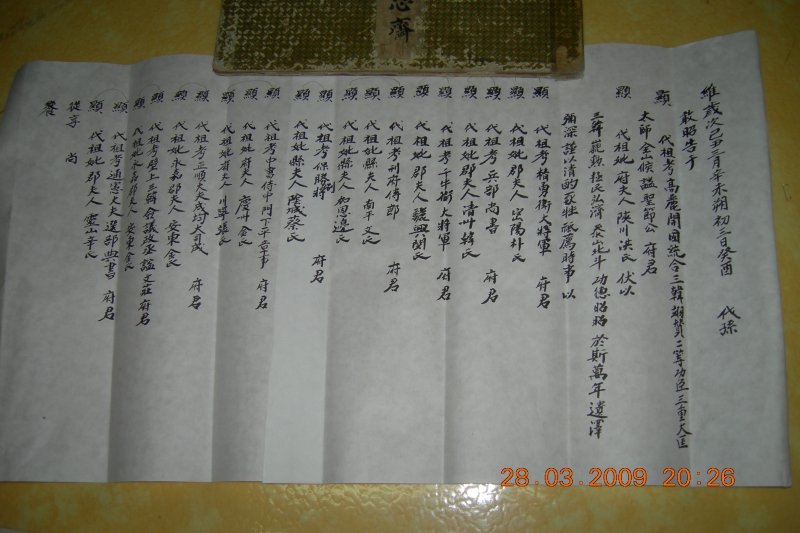 維歲次己丑三月辛未朔初三日癸酉 代孫
敢昭告于
顯 代祖考高麗開國統合三韓翊贊二等功臣三重大匡
太師金山侯諡聖節公 府君
顯 代祖妣府夫人陜川洪氏 伏以
三韓 勳 民弘澤 泰山北斗 功德昭昭 於斯萬年遺澤
彌深謹以清酌 牲祗薦時事以
顯 代祖考精勇衛大將軍 府君
顯 代祖妣郡夫人密陽朴氏
顯 代祖考兵部尚書 府君
顯 代祖妣郡夫人清州韓氏
顯 代祖考千牛衛大將軍 府君
顯 代祖妣郡夫人驪興閔氏
顯 代祖考刑府侍郎 府君
顯 代祖妣縣夫人南平文氏
顯 代祖妣縣夫人加恩邊氏
顯 代祖考保勝別將 府君
顯 代祖妣縣夫人陰城蔡氏
顯 代祖考中書侍中門下平章事 府君
顯 代祖妣府夫人慶州金氏
顯 代祖妣府夫人 張氏
顯 代祖考正順大夫成均大司成 府君
顯 代祖妣永嘉郡夫人安東金氏
顯 代祖考壁上三韓僉議政丞諡文莊府君
代祖妣永嘉郡夫人安東金氏
顯 代祖考通憲大夫選部典書 府君
顯 代祖妣郡夫人靈山辛氏
從享 尚
饗
齋
28.03.2009 20:26